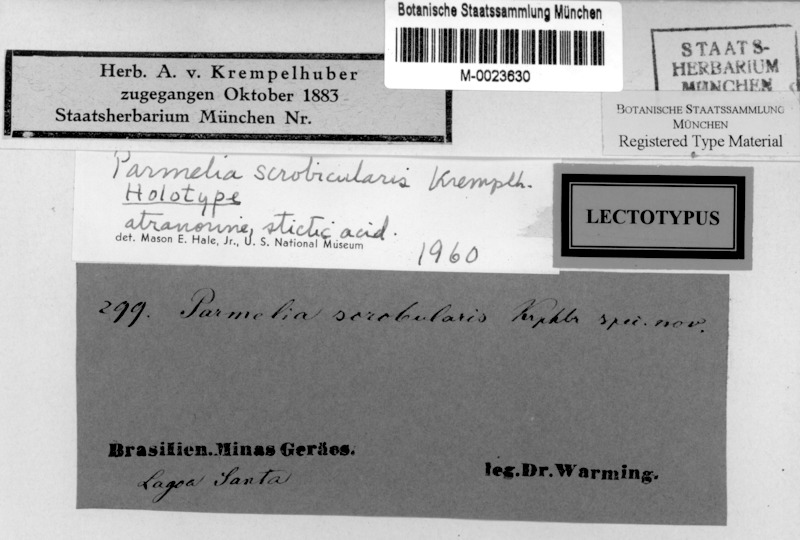 Botanische Staatssammlung München
M-0023630
STAATS-
HERBARIUM
MÜNCHEN
Herb. A. v. Krempelhuber
zugegangen Oktober 1883
Staatsherbarium München Nr.
BOTANISCHE STAATSSAMMLUNG
MÜNCHEN
Registered Type Material
Parmelia scrobicularis Kremplh.
Holotype
atranorine, stictic acid.
det. Mason E. Hale, Jr., U. S. National Museum
1960
LECTOTYPUS
299. Parmelia scrobicularis Krphbr spec. nov.
Brasilien. Minas Geräes.
Lagoa Santa
leg. Dr. Warming.